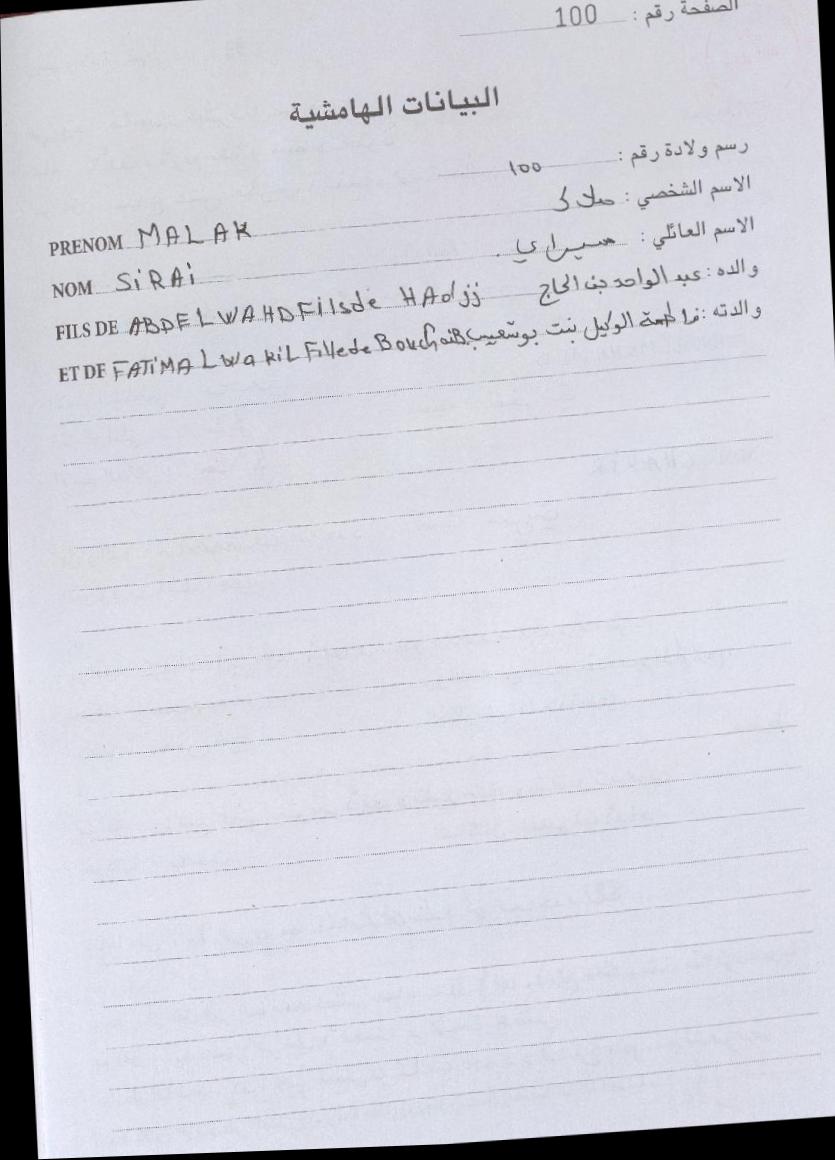 الصفحة رقم : 100
البيانات الهامشية
رسم ولادة رقم : 100
الاسم الشخصي : ملاك
PRENOM MALAK
الاسم العائلي : سيراي .
NOM SiRAi
والده : عبد الواحد بن الحاج
FILS DE ABDELWAHD Fils de HAdjj
والدته : فاطمة الوكيل بنت بوشعيب
ET DE FATiMA LWakiL Fille de BouchaiB